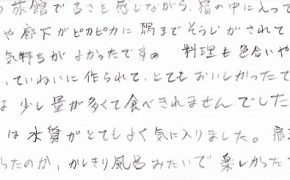 旅館でることを感じながら、宿の中に入って
や廊下がピカピカに隅までそうじがされて
気持ちがよかったですの 料理も色合いや
、ていねいに作られて、とてもおいしかったで
は少し量が多くて食べきれませんでした
は水質がとてもよく気に入りました。
ったのか、かしきり風呂みたいで楽しかった